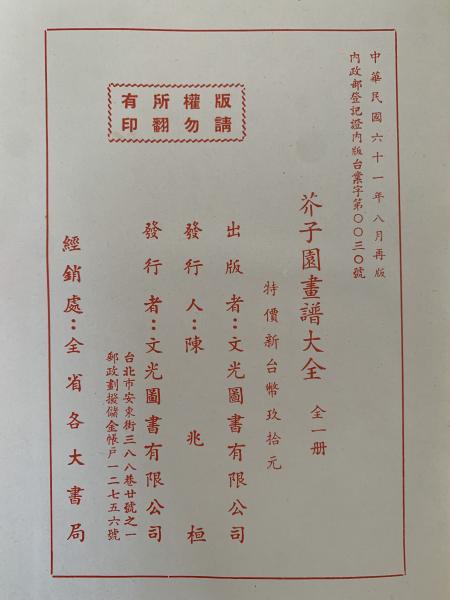 中華民國六十一年八月再版
內政部登記證內版台業字第〇〇三〇號
版權所有
請勿翻印
芥子園畫譜大全 全一冊
特價新台幣玖拾元
出版者：文光圖書有限公司
發行人：陳兆桓
發行者：文光圖書有限公司
台北市安東街三八八巷廿號之一
郵政劃撥儲金帳戶一二七五六號
經銷處：全省各大書局